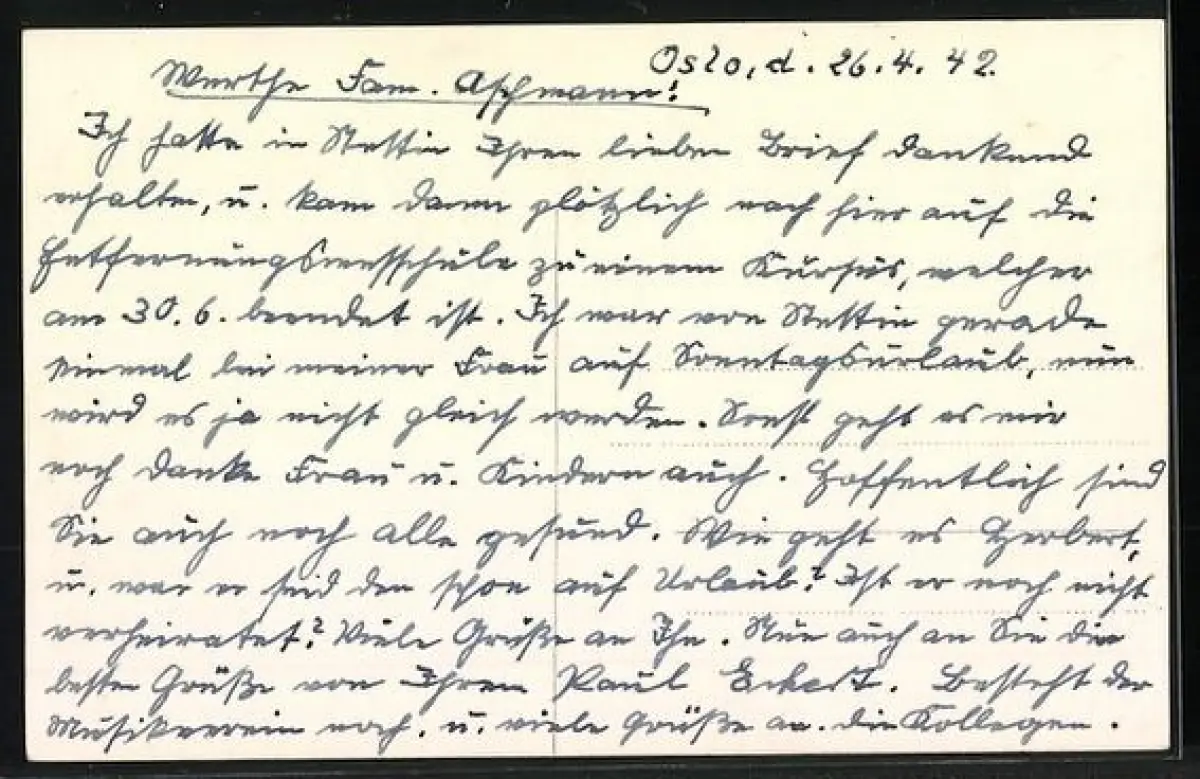 Oslo, d. 26.4.42.
Werthe Fam. Aschmann!
Ich hatte in Stettin Ihren lieben Brief dankend
erhalten, u. kam dann plötzlich nach hier auf die
Entfernungsmessschule zu einem Kursus, welcher
am 30.6. beendet ist. Ich war von Stettin gerade
einmal bei meiner Frau auf Sonntagsurlaub, nun
wird es ja nicht gleich werden. Sonst geht es mir
noch danke Frau u. Kindern auch. Hoffentlich sind
Sie auch noch alle gesund. Wie geht es Herbert,
u. war er seid den schon auf Urlaub? Ist er noch nicht
verheiratet? Viele Grüße an Ihn. Nun auch an Sie die
besten Grüße von Ihrem Paul Eckert. Besteht der
Musikverein noch, u. viele Grüße an die Kollegen.